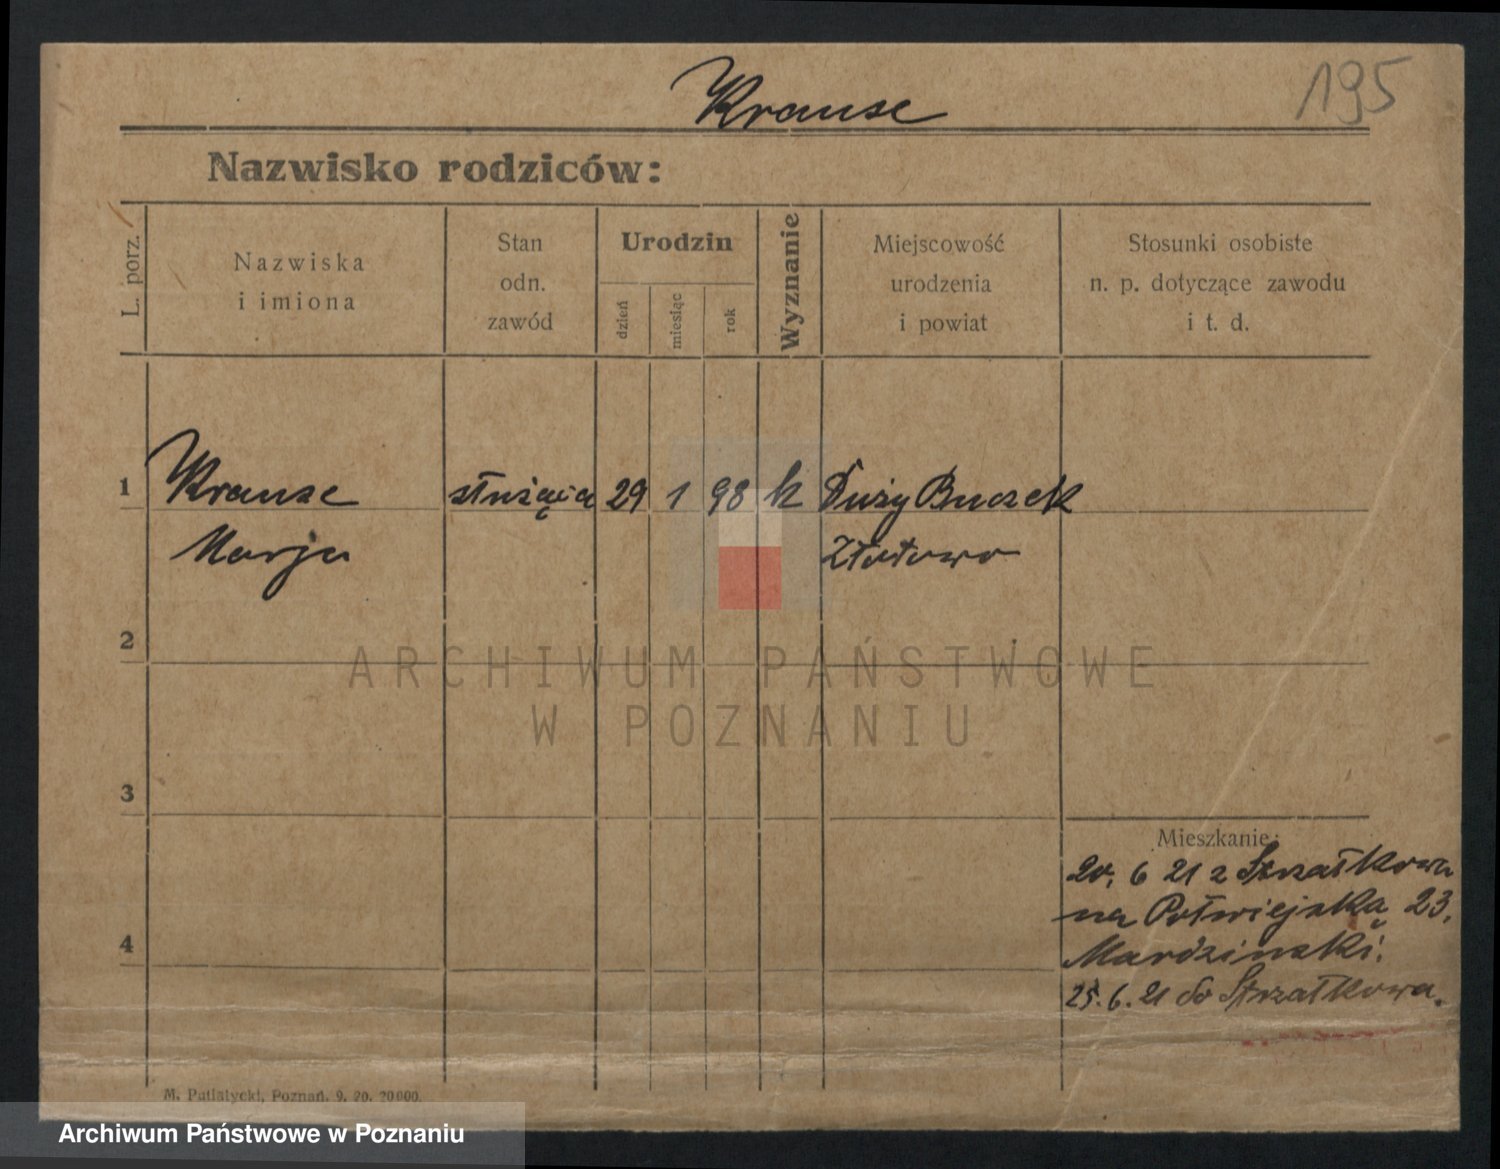 Krause
195
Nazwisko rodziców:
L. porz.
Nazwiska
i imiona
Stan
odn.
zawód
Urodzin
dzień
miesiąc
rok
Wyznanie
Miejscowość
urodzenia
i powiat
Stosunki osobiste
n. p. dotyczące zawodu
i t. d.
1 Krause służąca 29 1 98 k Duży Buczek
Marja Złotowo
2
3
4
ARCHIWUM PAŃSTWOWE
W POZNANIU
Mieszkanie:
20. 6 21 z Strzałkowa
na Półwiejską 23.
Mardzinski.
25. 6. 21 do Strzałkowa.
M. Putiatycki, Poznań. 9. 20. 20000.
Archiwum Państwowe w Poznaniu